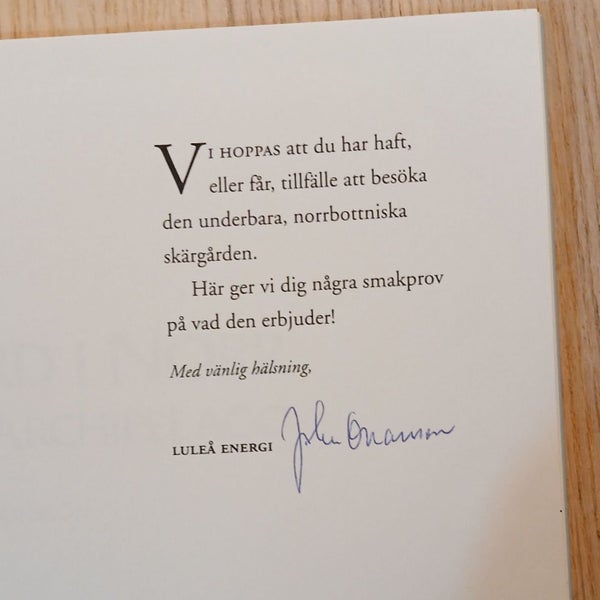 VI HOPPAS att du har haft,
eller får, tillfälle att besöka
den underbara, norrbottniska
skärgården.
Här ger vi dig några smakprov
på vad den erbjuder!
Med vänlig hälsning,
LULEÅ ENERGI